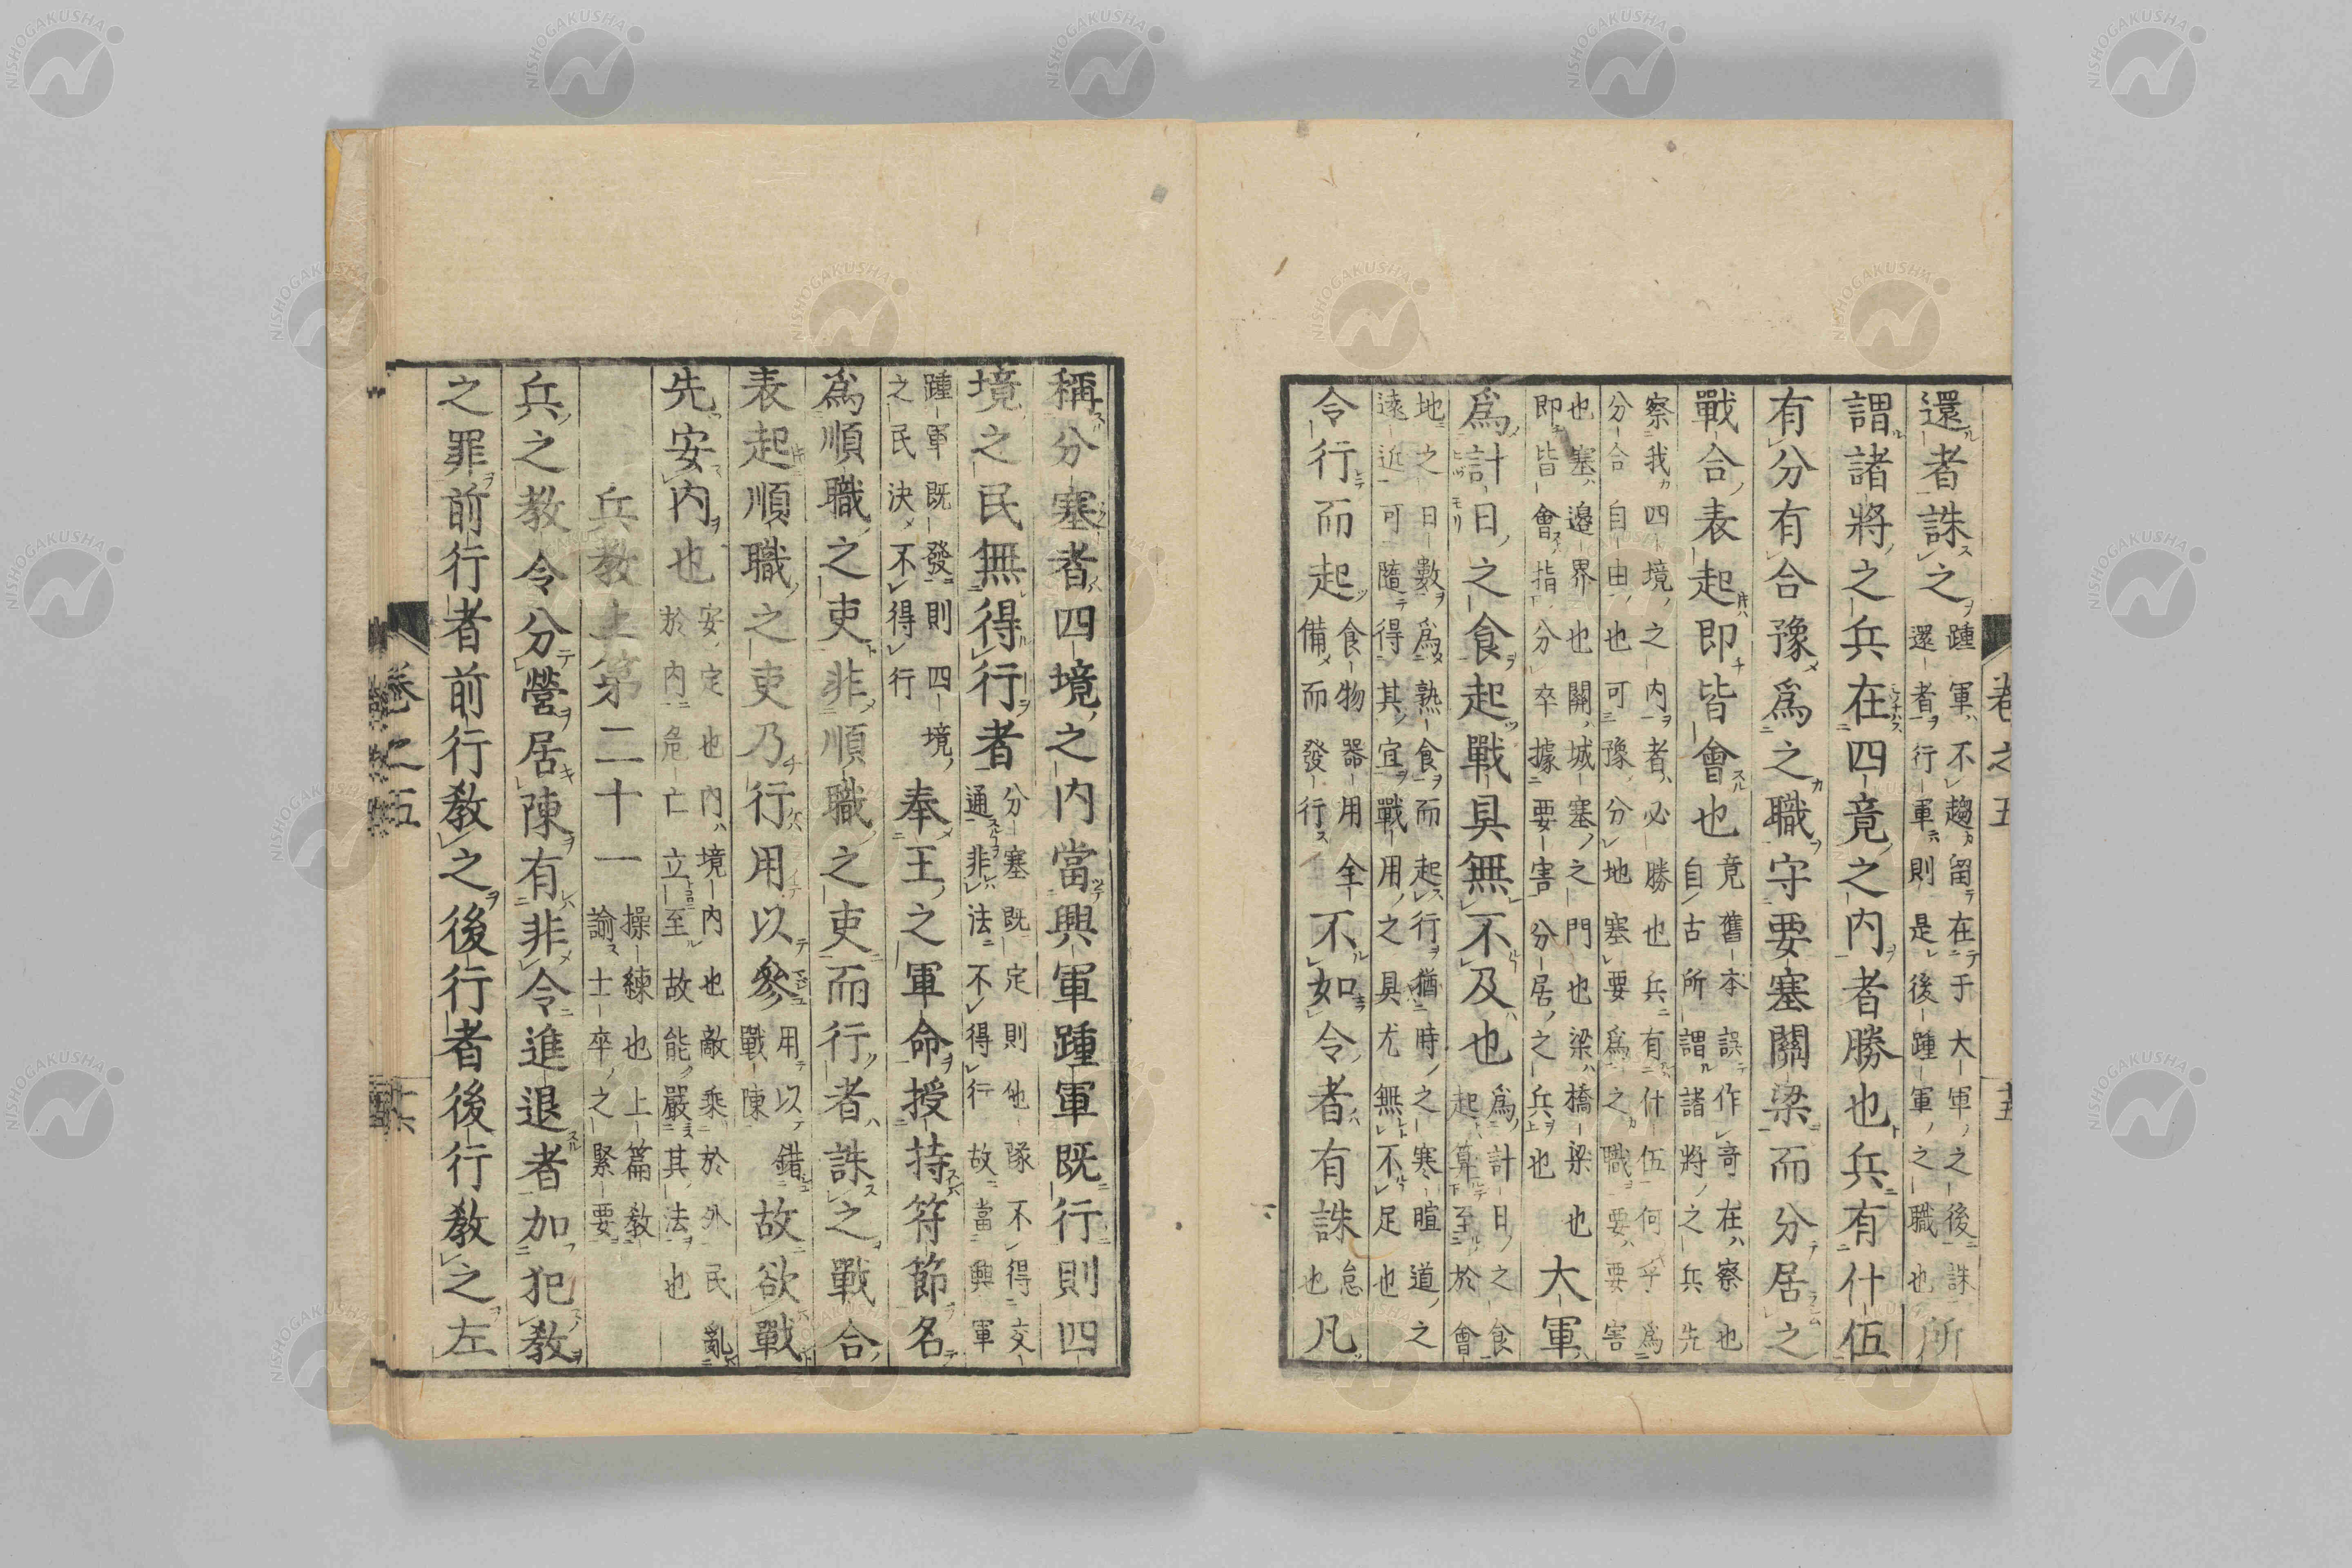 還者誅之踵軍不趨留在于大軍之後誅還者行軍則是後踵軍之職也所
謂諸將之兵在四竟之内者勝也兵有什伍
有分有合豫爲之職守要塞關梁而分居之
戰合表起即皆會也竟舊本誤作竒在察也自古所謂諸將之兵先
察我四境之内者必勝也兵有什伍何乎爲
分合自由也可豫分地塞要爲之職要要害
也塞邉界也關城塞之門也梁橋梁也
即皆會指分卒據要害分居之兵也大軍
爲計日之食起戰具無不及也爲計日之食起算至於會
地之日數爲熟食而起行猶時之寒暄道之
遠近可隨得其宜戰用之具尤無不足也
令行而起食物器用全備而發行不如令者有誅怠也凡
卷之五
十五
稱分塞者四境之内當興軍踵軍既行則四
境之民無得行者分塞既定則他隊不得交通非法不得行故當興軍
踵軍既發則四境之民決不得行奉王之軍命授持符節名
爲順職之吏非順職之吏而行者誅之戰合
表起順職之吏乃行用以參用以錯戰陳故欲戰
先安内也安定也内境内也敵乘於外民亂於内危亡立至故能嚴其法也
兵教上第二十一操練也上篇教諭士卒之緊要
兵之教令分營居陳有非令進退者加犯教
之罪前行者前行教之後行者後行教之左
卷之五
十六